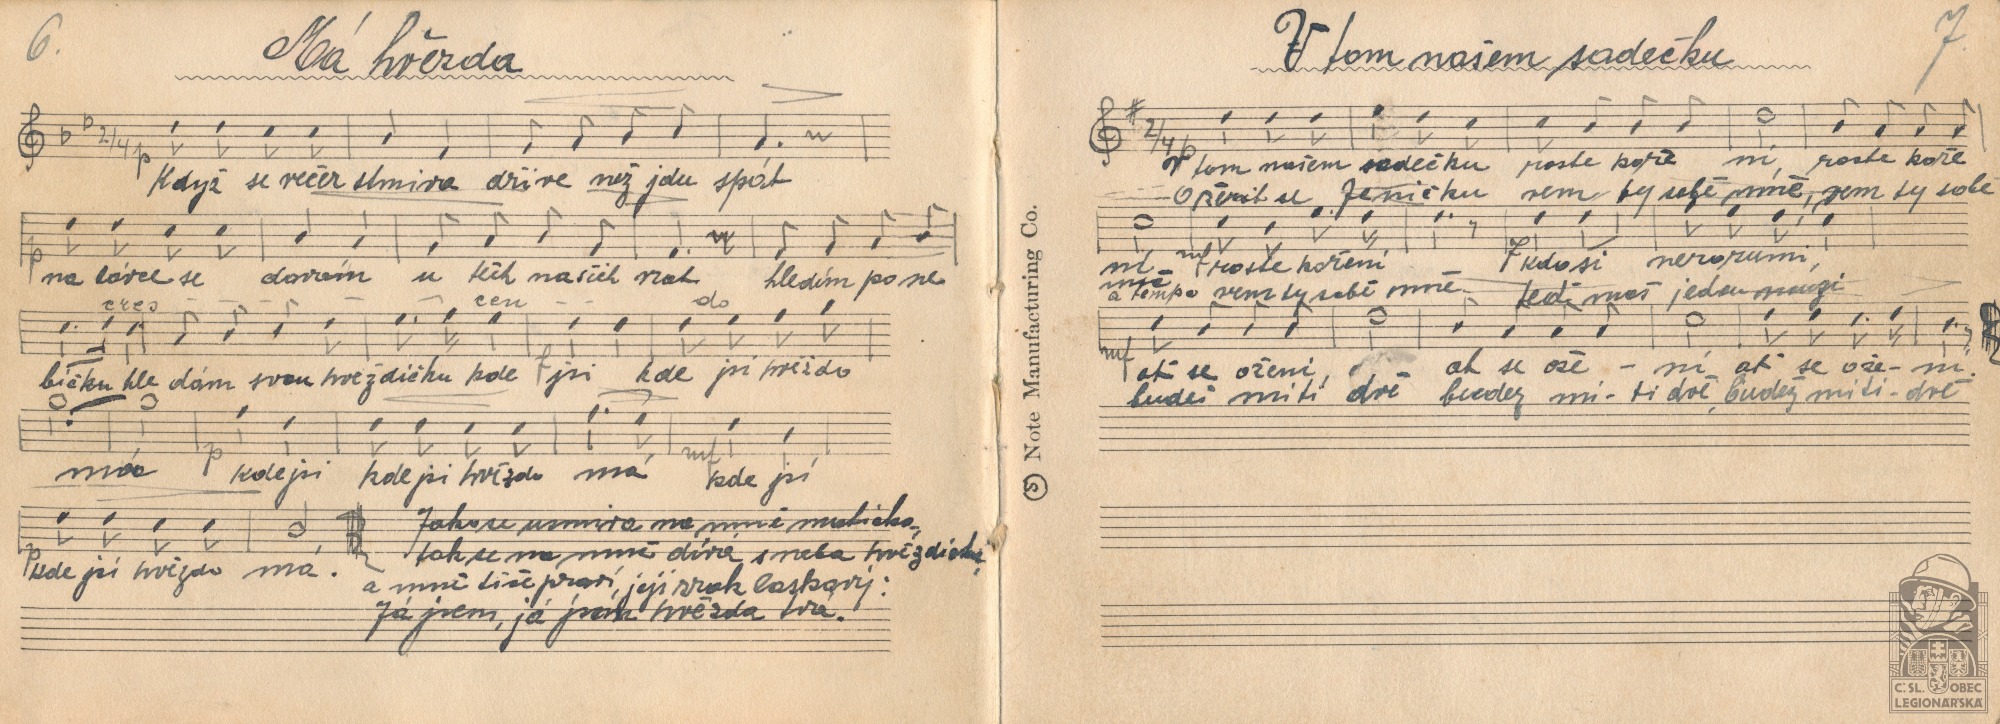 6.
Má hvězda
2/4 p
Když se večer stmívá dříve než jdu spát
p
na lávce se dívám u těch našich vrat hledím po ne
cres cen do
bíčku hle dám svou hvěždičku kde jsi kde jsi hvěždo
f
máa kde jsi kde jsi hvězdo má kde jsi
p mf
p
kde jsi hvězdo má.
Jako se usmívá na mně matička,
tak se na mně dívá s neba hvězdička,
a mně tiše praví, její zrak laskavý:
Já jsem, já jsem hvězda tvá.
Note Manufacturing Co.
7.
V tom našem sadečku
2/4 p
V tom našem sadečku roste koře ní, roste koře
Oženit se Jeničku vem ty sobě mně, vem ty sobě
ní mf roste koření f kdo si nerozumí,
mně
a tempo vem ty sobě mně teď máš jednu
mf
ať se ožení, ať se ože - ní ať se ože - ní.
budeš míti dvě budeš mí - ti dvě, budeš míti - dvě
Č.SL. OBEC
LEGIONÁŘSKÁ